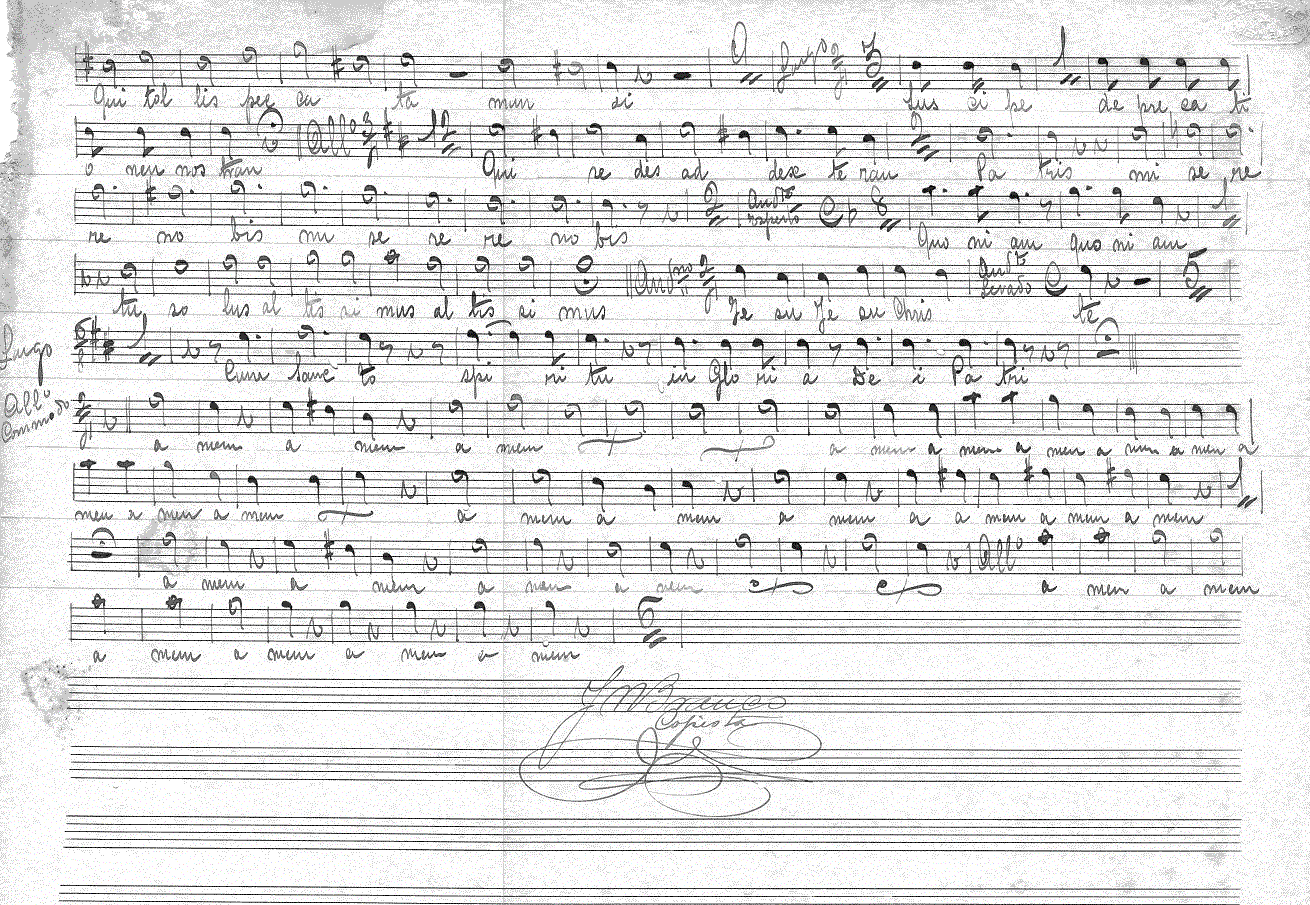 Qui tol lis pec ca ta mun di Largo 2 3 sus ci pe de pre ca ti
o nem nos tram All.º 12 Qui se des ad dex te ram Pa tris mi se re
re no bis mi se re re no bis 2 And.te C 8 Quo ni am quo ni am
tu so lus al tis si mus al tis si mus And.no Je su Je su Chris And.te C te 5
Largo Cum Sanc to Spi ri tu in Glo ri a De i Pa tri
All.º Commodo a mem a mem a mem a mem a mem a mem a mem a mem a
mem a mem a mem a mem a mem a mem a a mem a mem a mem
a mem a mem a mem a mem All.º a mem a mem
a mem a mem a mem a mem 6
Copista